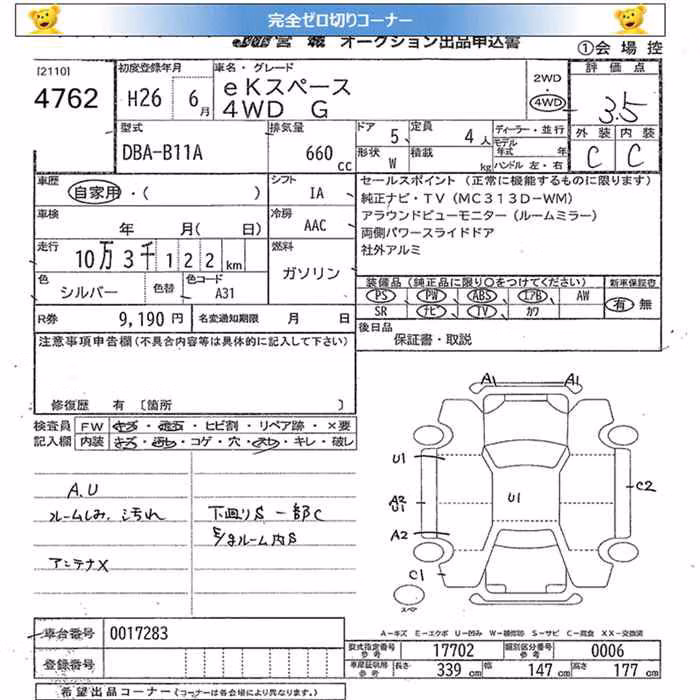 完全ゼロ切りコーナー
宮城 オークション出品申込書
①会場控
[2110]
4762
初度登録年月
H26 6月
車名・グレード
eKスペース
4WD G
2WD
・
4WD
評価点
3.5
外装 内装
C C
型式
DBA-B11A
排気量
660 cc
ドア 5
定員 4人
形状 W
積載 kg
ディーラー・並行
モデル年式 年
ハンドル 左・右
車歴
自家用・( )
シフト
IA
車検
年 月( 日)
冷房
AAC
走行
10万3千122km
燃料
ガソリン
色
シルバー
色替
色コード
A31
R券 9,190円
名変通知期限 月 日
セールスポイント (正常に機能するものに限ります)
純正ナビ・TV(MC313D-WM)
アラウンドビューモニター(ルームミラー)
両側パワースライドドア
社外アルミ
装備品(純正品に限り○をつけてください)
新車保証書
PS PW ABS エアB AW
有 無
SR ナビ TV カワ
後日品
保証書・取説
注意事項申告欄(不具合内容等は具体的に記入して下さい)
修復歴 有 [箇所 ]
検査員記入欄
FW キズ・飛石・ヒビ割・リペア跡・×要
内装 キズ・汚れ・コゲ・穴・スレ・キレ・破レ
A.U
ルームしみ、汚れ
アンテナX
下廻りS 一部C
ルーム内S
A1 A1
U1
A2
U1
A2
C1
U1
C2
スペア
A-キズ E-エクボ U-凹み W-補修跡 S-サビ C-腐食 XX-交換済
車台番号 0017283
登録番号
型式指定番号 参考 17702
類別区分番号 参考 0006
車庫証明用 参考 長さ 339cm 幅 147cm 高さ 177cm
希望出品コーナー(コーナーは各会場により異なります。)